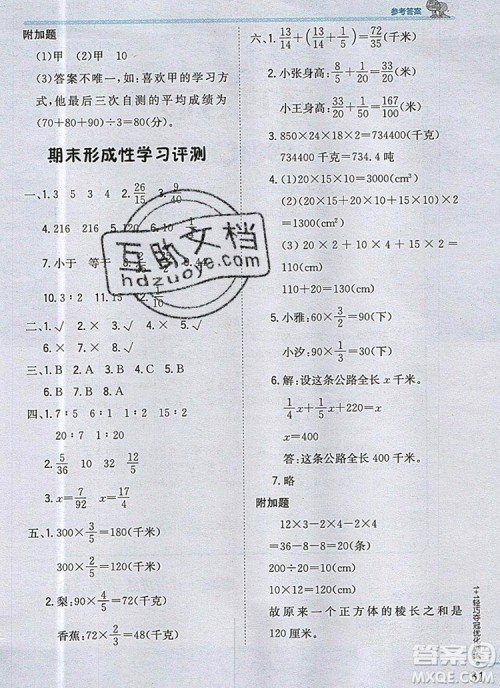 参考答案
附加题
(1)甲 (2)甲 10
(3)答案不唯一,如:喜欢甲的学习方
式,他最后三次自测的平均成绩为
(70+80+90)÷3=80(分)。
期末形成性学习评测
一、1.3 5 3 4 2. 26/15
4.216 216 5.120
7.小于 等于
10.3∶2 11.15
二、1.√ 2.× 3.× 4.√ 5.√
三、1.B 2.A 3.B 4.A 5.C
6.B 7.B 8.A
四、1.7∶5 6∶1 1∶2
20∶1 5∶2
2. 5/36 10
3.x=7/92 x=
五、1.300×3/5=180(千米)
300×2/5=120(千米)
2.梨:90×4/5=72(千克)
香蕉:72×5/8=45(千克)
六、1. 13/14+(13/14+1/5)=72/35(千米)
2.小张身高:8/5+1/25=41/25(米)
小王身高:41/25+3/100=167/100(米)
3.850×24×18×2=734400(千克)
734400千克=734.4吨
4.(1)20×15×10=3000(cm³)
(2)(20×15+20×10+15×10)×2
=1300(cm²)
(3)20×2+10×4+15×2=
110(cm) 110+40=150(cm)
5.小雅:90×2/3=60(下)
小汐:90×1/3=30(下)
6.解:设这条公路全长x千米。
1/4x+1/5x+220=x
x=400
答:这条公路全长400千米。
7.略
附加题
12×3-2×2-2×4
=36-8-8=20(厘米)
200÷20=10(厘米)
10×12=120(厘米)
故原来一个正方体的棱长之和是
120厘米。
互助文档
hdzuoye.com
1+1轻巧夺冠优化
答案圈
MXQE.COM